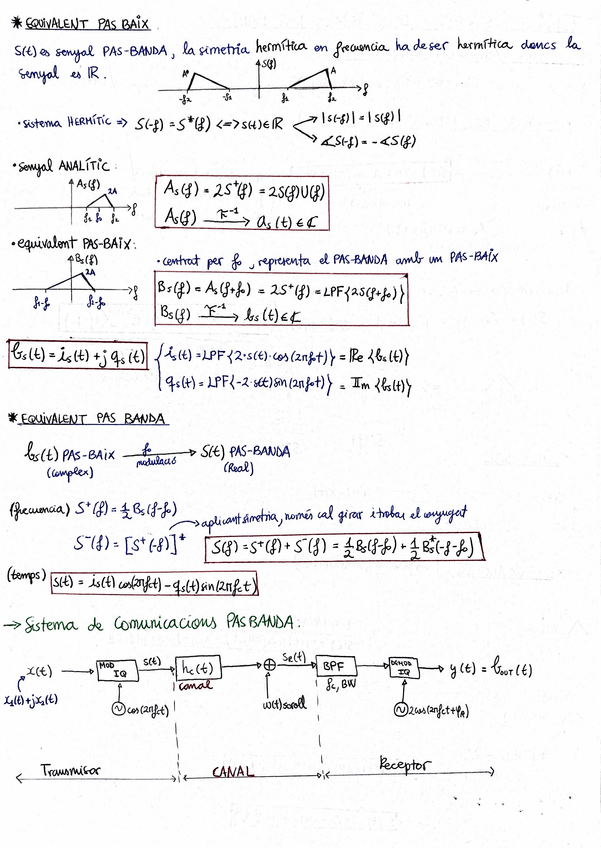 * EQUIVALENT PAS BAIX
S(t) es senyal PAS-BANDA, la simetria hermítica en frecuencia ha de ser hermítica doncs la
senyal es ℝ.
S(f)
A A
-f2 -f1 f1 f2 f
· sistema HERMÍTIC => S(-f) = S*(f) <=> s(t)∈ℝ
|S(-f)| = |S(f)|
∡S(-f) = -∡S(f)
· senyal ANALÍTIC:
As(f)
2A
f1 f0 f2 f
As(f) = 2S⁺(f) = 2S(f)U(f)
As(f) F⁻¹ → as(t) ∈ ℂ
· equivalent PAS-BAIX:
Bs(f)
2A
f1-f0 f2-f0 f
· centrat per f0, representa el PAS-BANDA amb un PAS-BAIX
Bs(f) = As(f+f0) = 2S⁺(f) = LPF{2S(f+f0)}
Bs(f) F⁻¹ → bs(t)∈ℂ
bs(t) = is(t) + j qs(t)
is(t) = LPF{2·s(t)·cos(2πf0t)} = Re{bs(t)}
qs(t) = LPF{-2·s(t)sin(2πf0t)} = Im{bs(t)}
* EQUIVALENT PAS BANDA
bs(t) PAS-BAIX f0 modulació → S(t) PAS-BANDA
(complex) (Real)
(frecuencia) S⁺(f) = 1/2 Bs(f-f0)
→ aplicant simetria, només cal girar i trobar el conjugat
S⁻(f) = [S⁺(-f)]* S(f) = S⁺(f) + S⁻(f) = 1/2 Bs(f-f0) + 1/2 Bs*(-f-f0)
(temps) s(t) = is(t) cos(2πfct) - qs(t) sin(2πfct)
→ Sistema de Comunicacions PAS BANDA:
x(t) → MOD IQ S(t) → hc(t) → ⊕ Se(t) → BPF → DEMOD IQ → y(t) = bout(t)
canal
fc, BW
x1(t)+jx2(t)
cos(2πfct)
w(t) soroll
2cos(2πfct+φR)
Transmisor CANAL Receptor